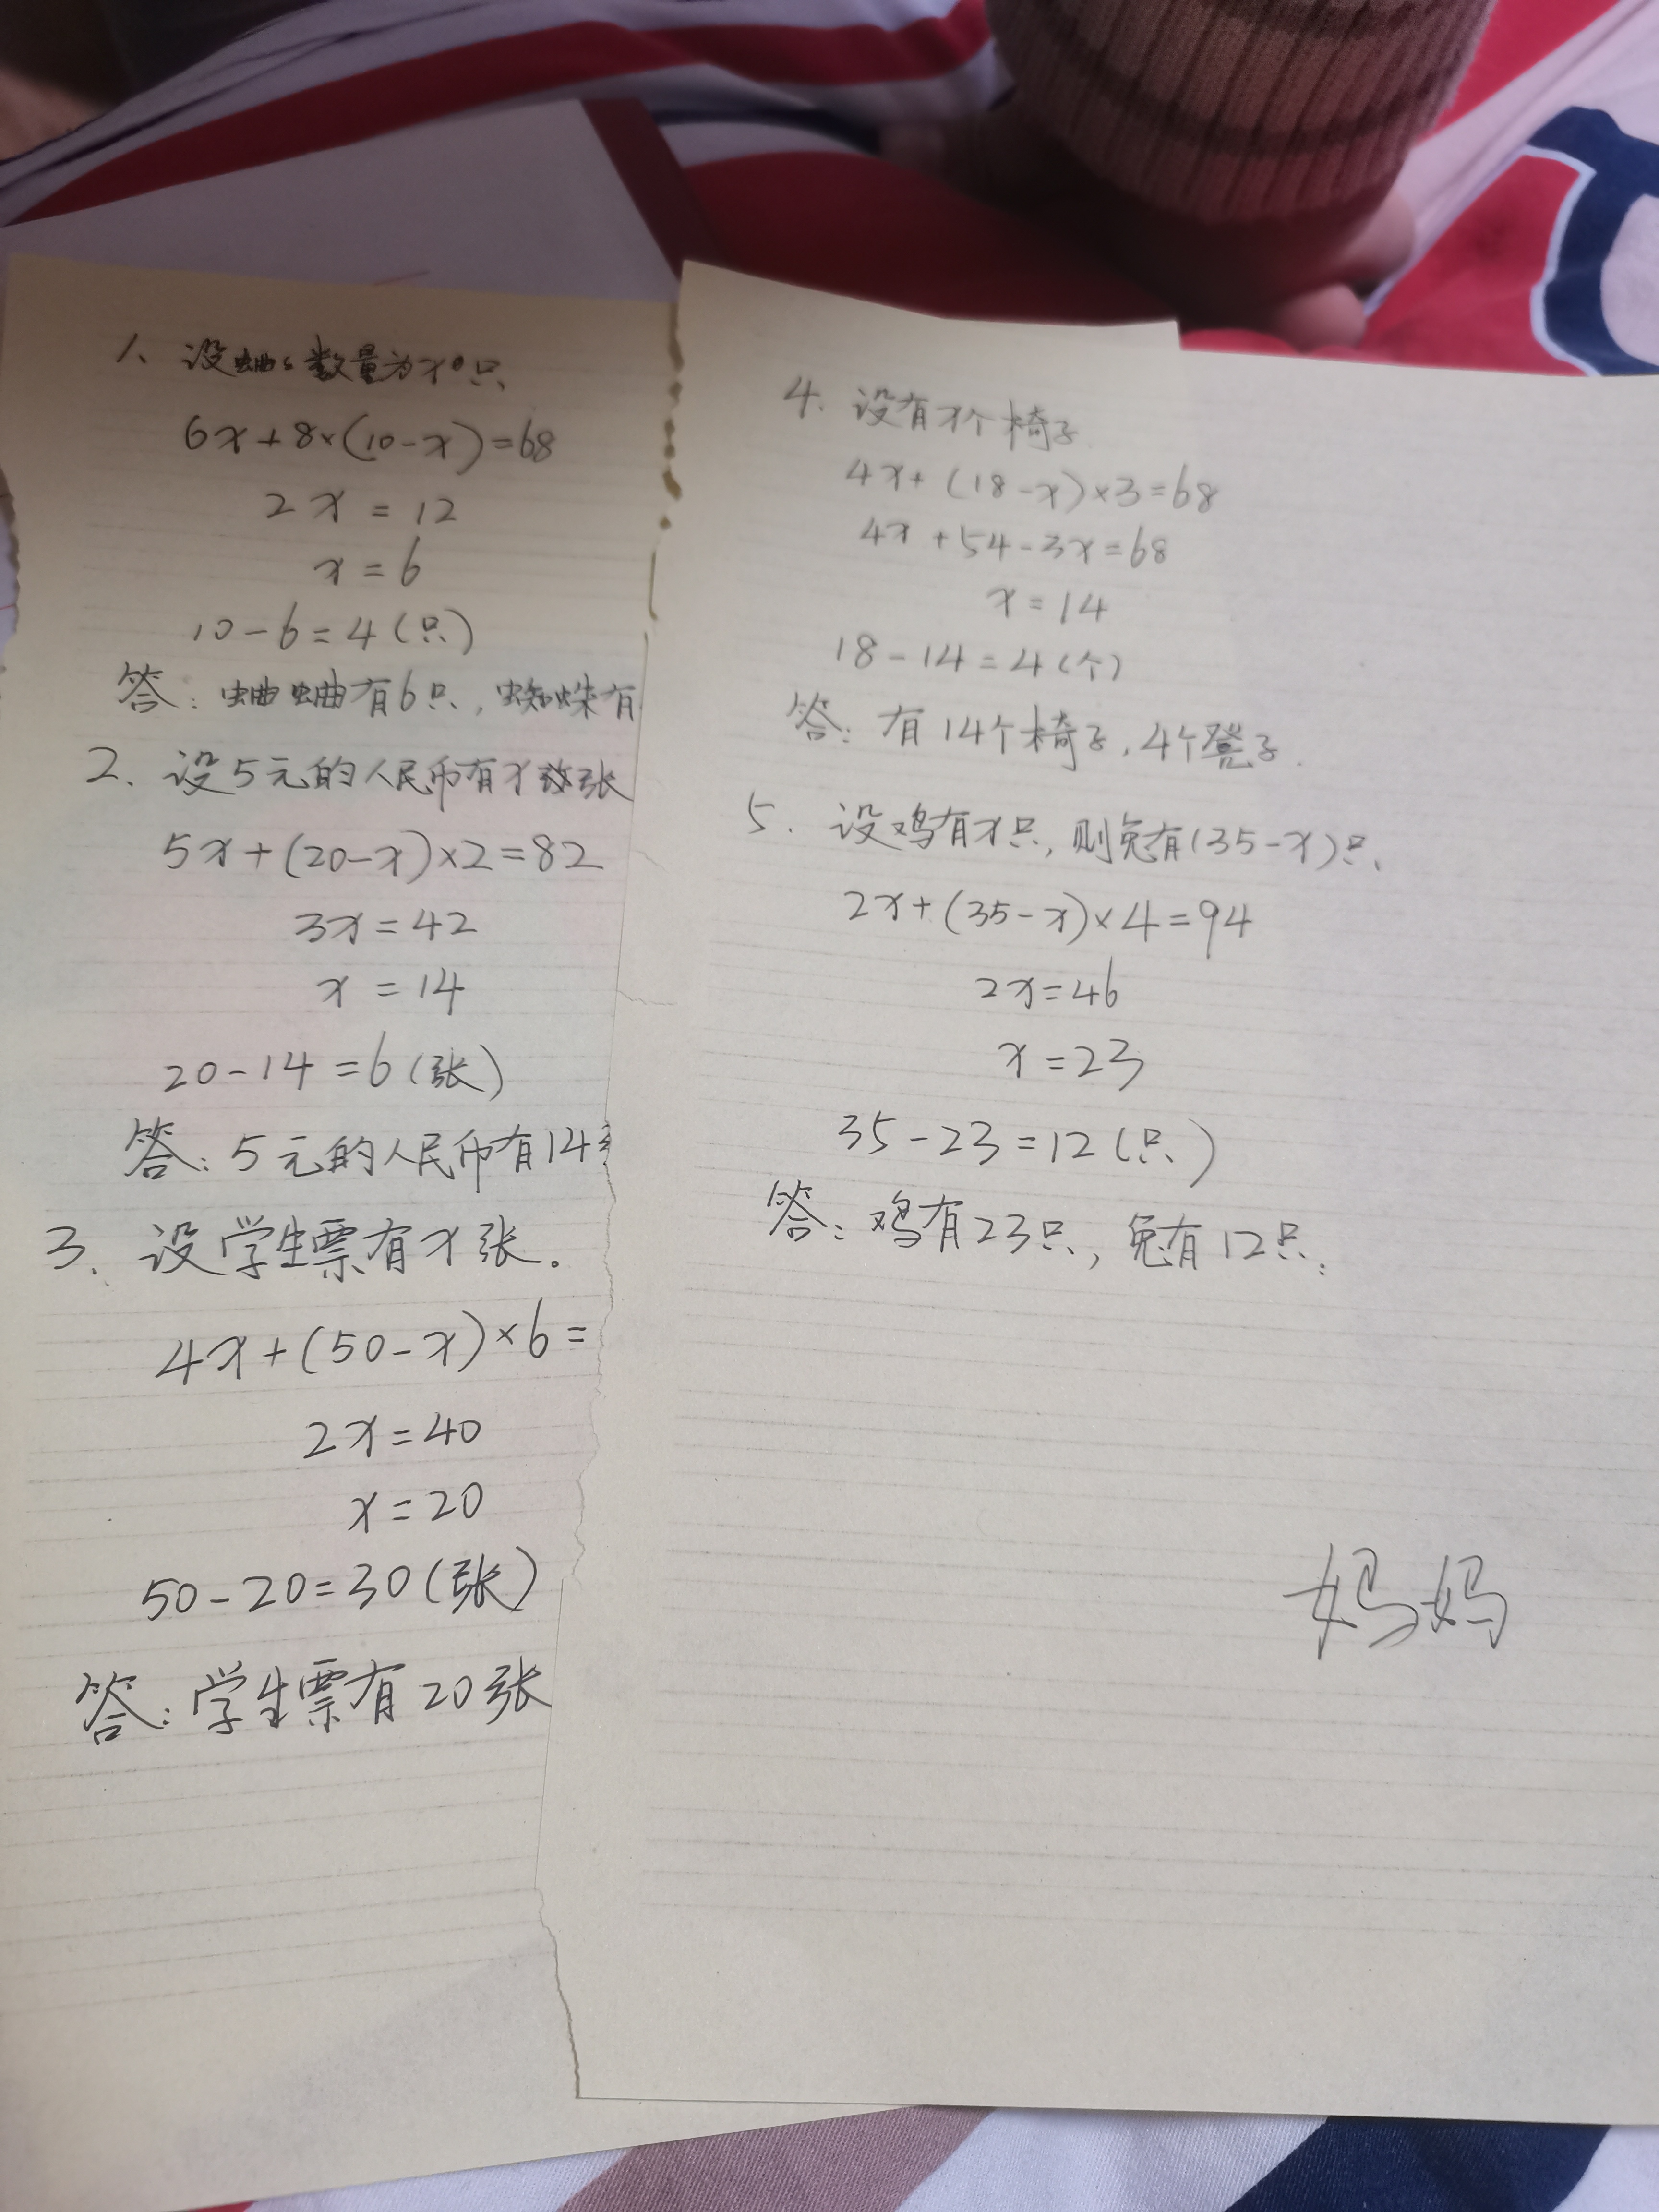 1、设蛐蛐数量为x只、
6x+8×(10-x)=68
2x=12
x=6
10-6=4(只)
答:蛐蛐有6只,蜘蛛有
2、设5元的人民币有x张
5x+(20-x)×2=82
3x=42
x=14
20-14=6(张)
答:5元的人民币有14
3、设学生票有x张。
4x+(50-x)×6=
2x=40
x=20
50-20=30(张)
答:学生票有20张
4、设有x个椅子
4x+(18-x)×3=68
4x+54-3x=68
x=14
18-14=4(个)
答:有14个椅子,4个凳子.
5、设鸡有x只,则兔有(35-x)只、
2x+(35-x)×4=94
2x=46
x=23
35-23=12(只)
答:鸡有23只,兔有12只.
妈妈